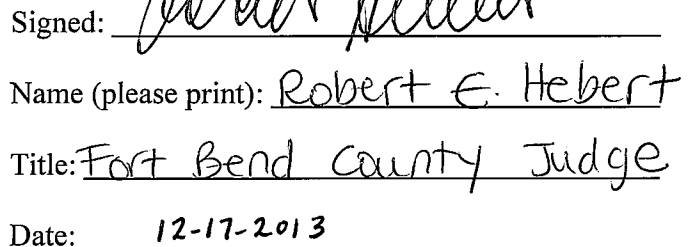 Signed:
Name (please print): Robert E. Hebert
Title: Fort Bend County Judge
Date: 12-17-2013